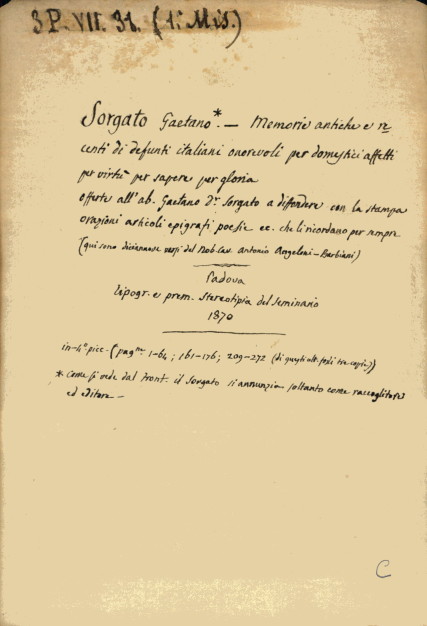 3P. VII. 31. (1ª Mis.)
Sorgato Gaetano*. — Memorie antiche e re=
centi di defunti italiani onorevoli per domestici affetti
per virtù per sapere per gloria
offerte all'ab. Gaetano Dr. Sorgato a diffondere con la stampa
orazioni articoli epigrafi poesie ec. che li ricordano per sempre
(qui sono diciannove versi del Nob. Cav. Antonio Angeloni-Barbiani)
Padova
tipogr. e prem. stereotipia del seminario
1870
in-4º picc. (pagne 1-64; 161-176; 209-272 (di questi ult. fogli tre copie))
* Come si vede dal front. il Sorgato si annunzia soltanto come raccoglitore
ed editore —
C